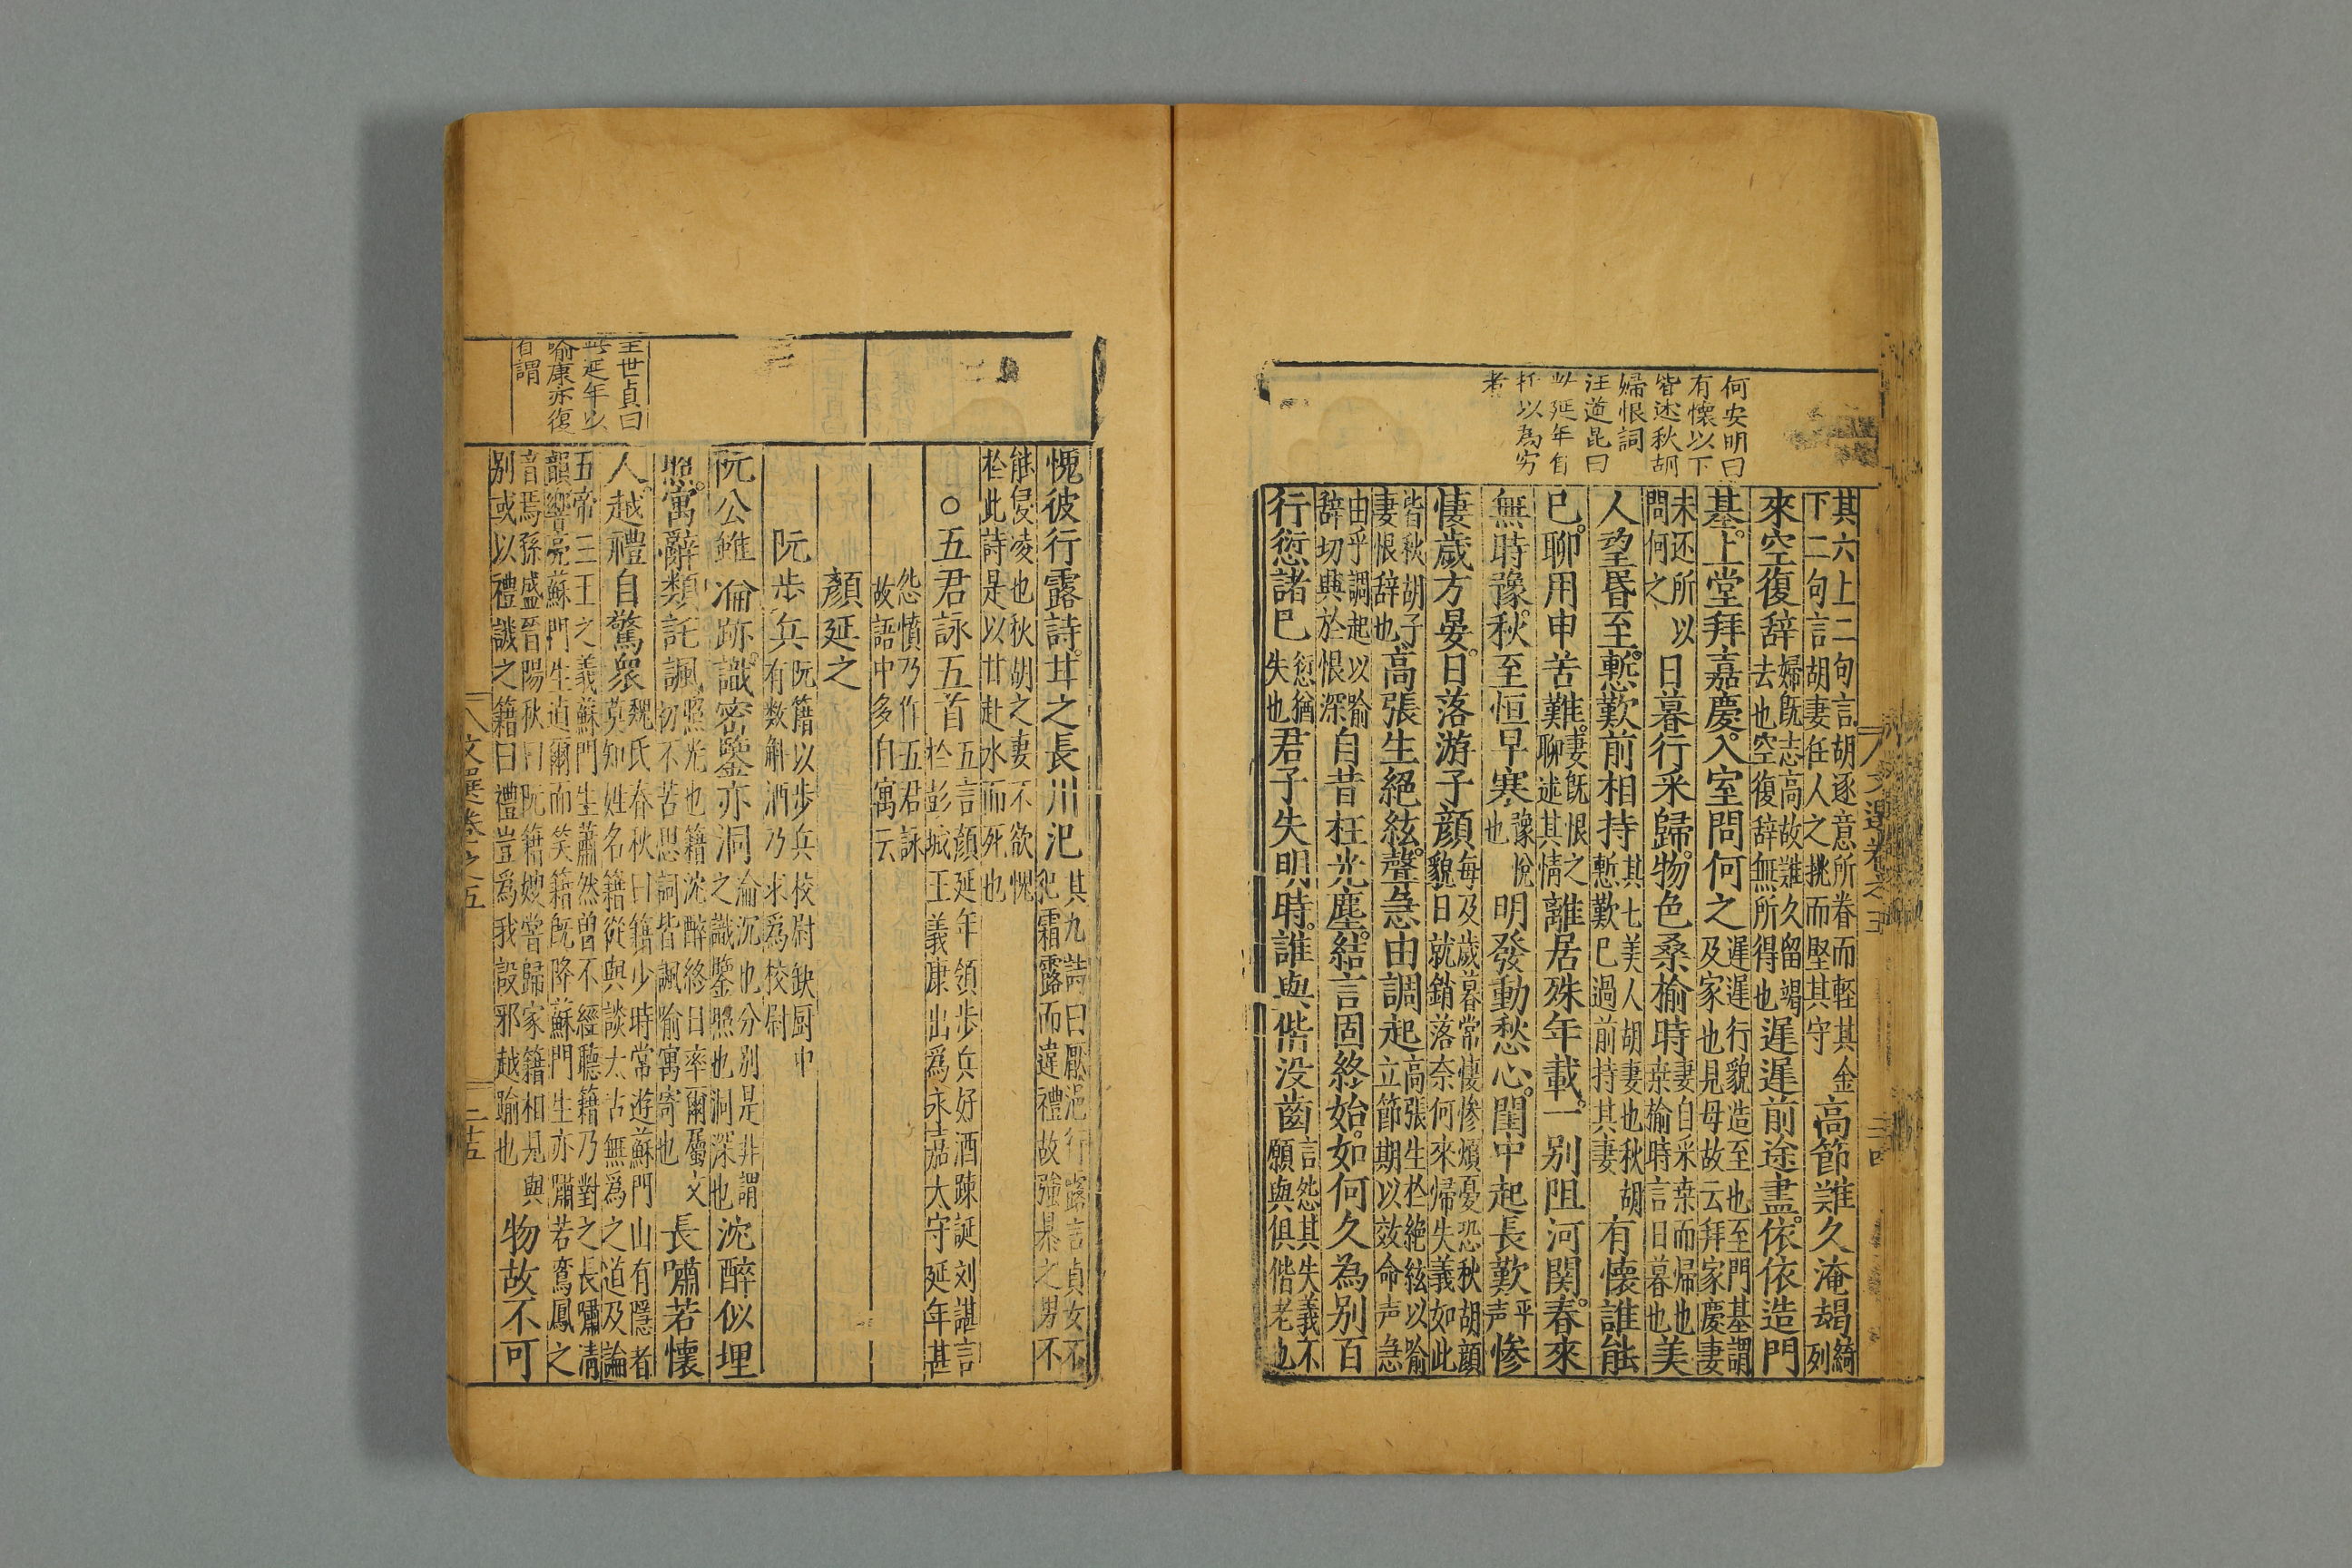 何安明曰
有懷以下
皆述秋胡
婦恨詞
汪道昆曰
此延年自
托以為穷
者
其六上二句言胡逐意所眷而輕其金
下二句言胡妻任人之挑而堅其守
高節難久淹朅
綺
列
來空復辭
婦既志高故難久留朅
去也空復辞無所得也
遲遲前途盡依依造門
基上堂拜嘉慶入室問何之
遲遲行貌造至也至門基謂
及家也見母故云拜家慶妻
未还所以
問何之
日暮行采歸物色桑榆時
妻自采桒而帰也
桒榆時言日暮也
美
人望昏至慙歎前相持
其七美人胡妻也秋胡
慙歎已過前持其妻
有懷誰能
已聊用申苦難
妻既恨之
聊述其情
離居殊年載一别阻河関春來
無時豫秋至恒早寒
豫悅
也
明發動愁心閨中起長歎
平
声
惨
悽歲方晏日落游子顔
每及歲暮常悽惨煩憂恐秋胡顔
貌日就銷落奈何來帰失義如此
皆秋胡子
妻恨辞也
高張生絕絃聲急由調起
高張生扵絶絃以喻
立節期以效命声急
由乎調起以喻
辞切興於恨深
自昔枉光塵結言固終始如何久為别百
行愆諸已
愆猶
失也
君子失明時誰與偕没齒
言怨其失義不
願與俱偕老也
愧彼行露詩甘之長川汜
其九詩曰厭浥行露言貞女不
犯霜露而違禮故強暴之男不
能侵凌也秋胡之妻不欲愧
扵此詩是以甘赴水而死也
○五君詠五首
五言顔延年領步兵好酒踈誕刘諶言
扵彭城王義康出爲永嘉太守延年甚
怨憤乃作五君詠
故語中多自寓云
顏延之
阮步兵
阮籍以步兵校尉缺厨中
有数斛酒乃求爲校尉
阮公雖淪跡識密鑒亦洞
淪沉也分别是非謂
之識鑒照也洞深也
沈醉似埋
照寓辭類託諷
照光也籍沈醉終日率爾屬文
初不苦思詞皆諷喻寓寄也
長嘯若懷
人越禮自驚衆
魏氏春秋曰籍少時常遊蘇門山有隱者
莫知姓名籍從與談太古無爲之道及論
五帝三王之義蘇門生蕭然曾不經聽籍乃對之長嘯清
韻響亮蘇門生逌爾而笑籍既降蘇門生亦嘯若鸞鳳之
音焉孫盛晉陽秋曰阮籍嫂嘗歸家籍相見與
别或以禮譏之籍曰禮豈爲我設邪越踰也
物故不可
王世貞曰
此延年以
喻康亦復
自謂
文選卷之五
二十五